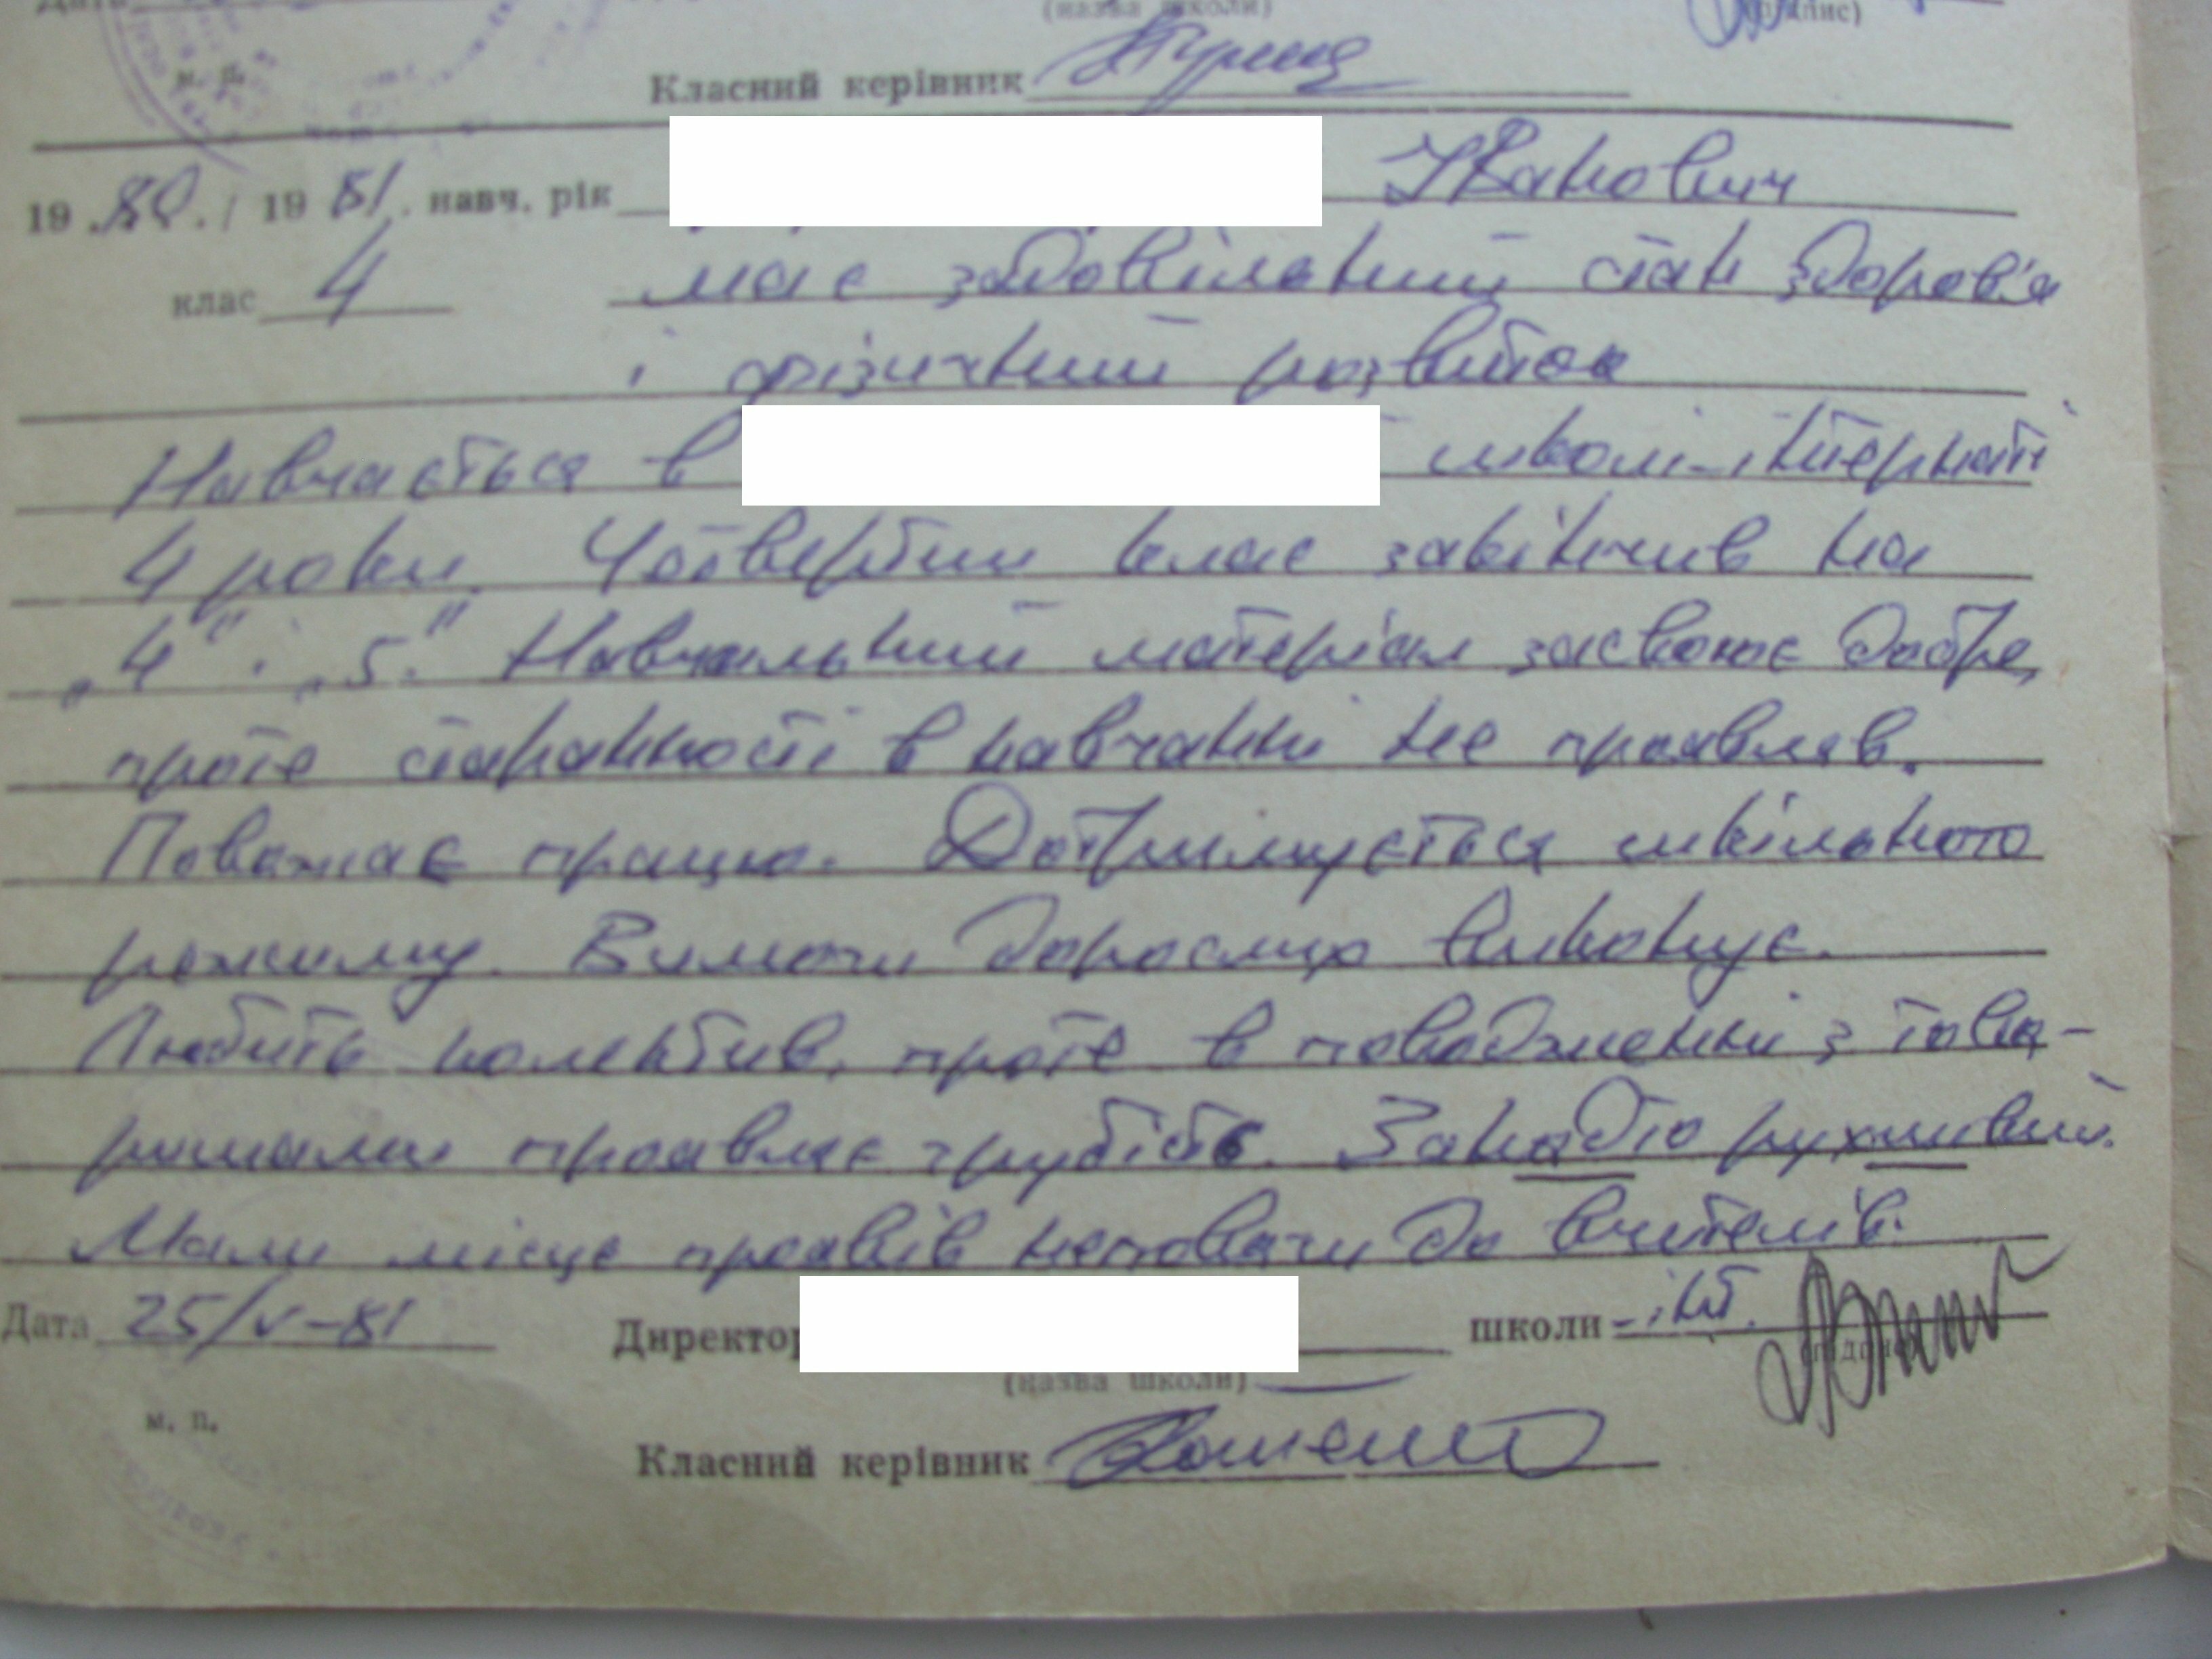 Дата
(назва школи)
(підпис)
м. п.
Класний керівник
19 80 / 1981. навч. рік Іванович
клас 4 має задовільний стан здоров'я
і фізичний розвиток
Навчається в школі-інтернаті
4 роки. Четвертий клас закінчив на
„4" і „5". Навчальний матеріал засвоює добре,
проте старанності в навчанні не проявляв.
Поважає працю. Дотримується шкільного
режиму. Вимоги дорослих виконує.
Любить колектив, проте в поводженні з това-
ришами проявляє грубість. Занадто рухливий.
Мали місце проявів неповаги до вчителів.
Дата 25/V-81 Директор школи-інт.
(підпис)
(назва школи)
м. п.
Класний керівник